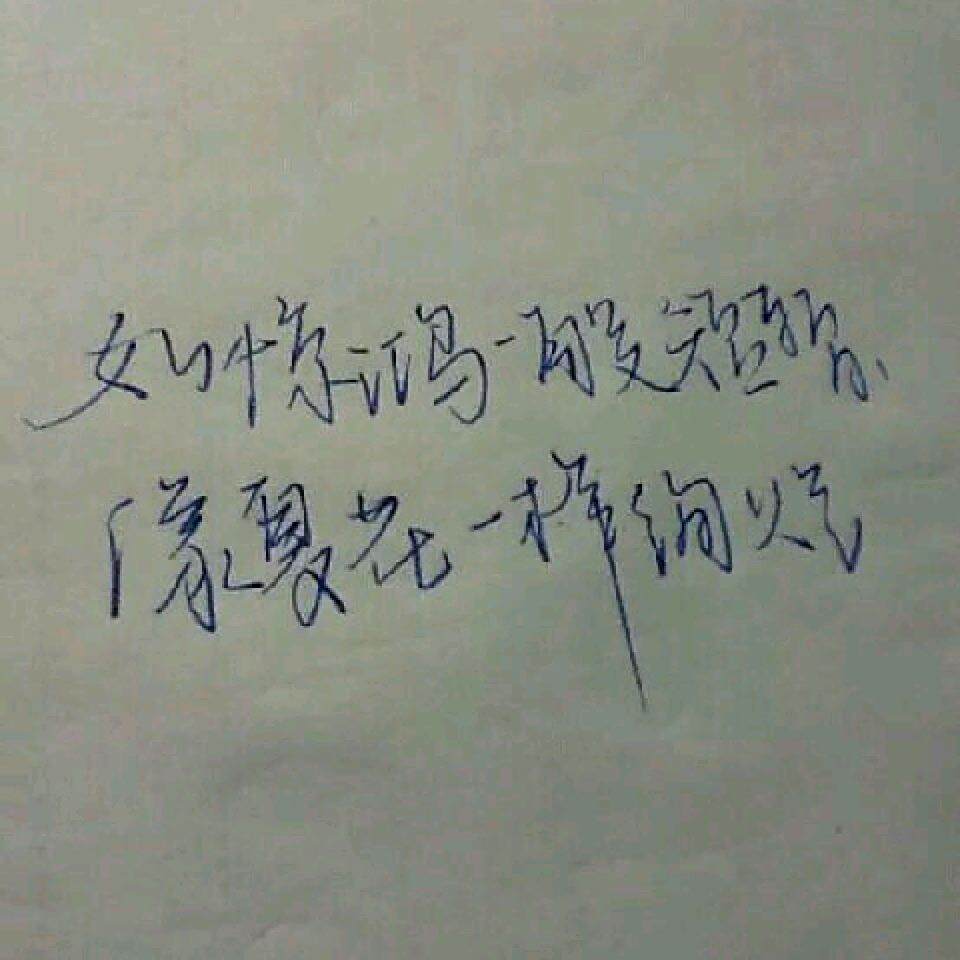 如惊鸿一般短暂
像夏花一样绚烂